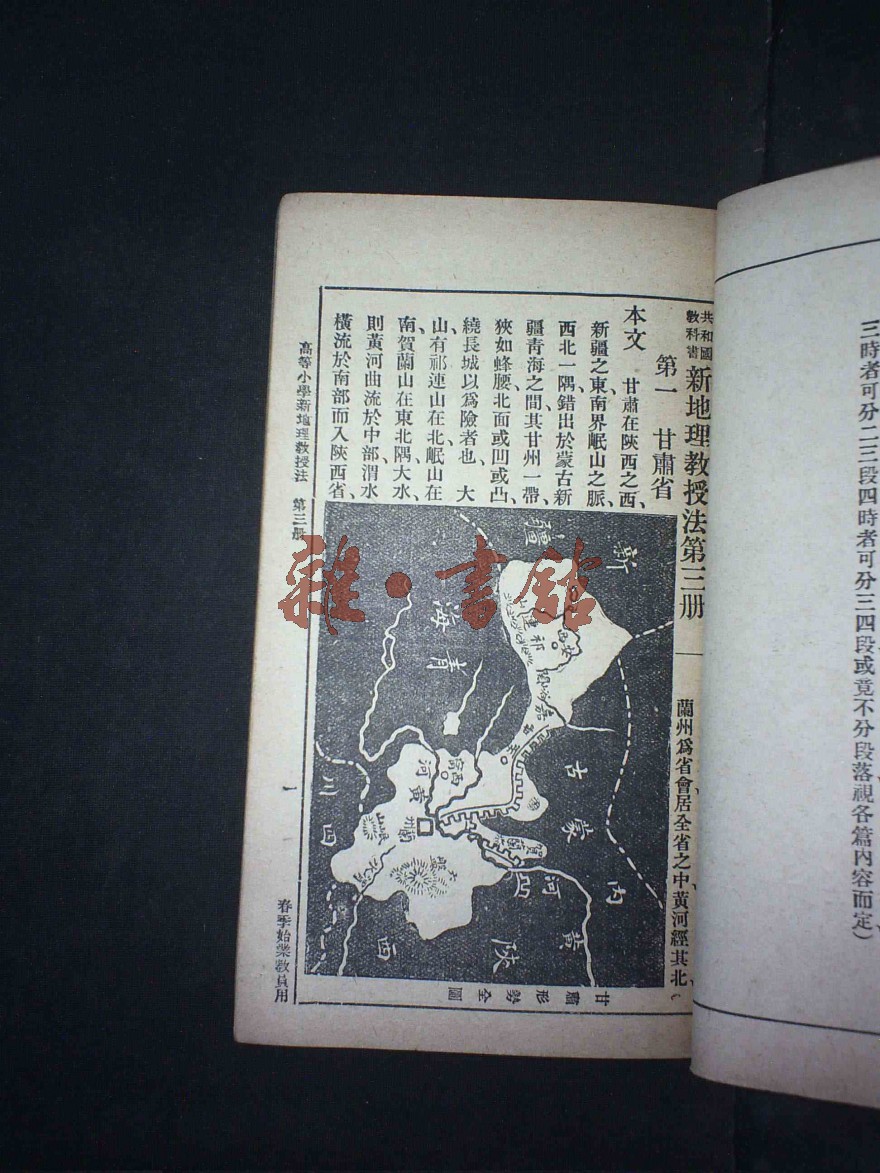 三時者可分二三段四時者可分三四段或竟不分段落視各篇內容而定）
共和國
教科書
新地理教授法第三册
第一　甘肅省
本文　甘肅在陝西之西、
新疆之東南界岷山之脈、
西北一隅錯出於蒙古新
疆青海之間其甘州一帶、
狹如蜂腰北面或凹或凸、
繞長城以爲險者也、大
山有祁連山在北岷山在
南賀蘭山在東北隅大水、
則黃河曲流於中部渭水
橫流於南部而入陝西省、
蘭州爲省會居全省之中黃河經其北、
新疆
青海
內蒙古
四川
陝西
黃河
黃河
祁連山
安西
嘉峪關
西寧
蘭州
岷山
賀蘭
甘肅形勢全圖
高等小學新地理教授法　第三册
一
春季始業教員用
雜·書館